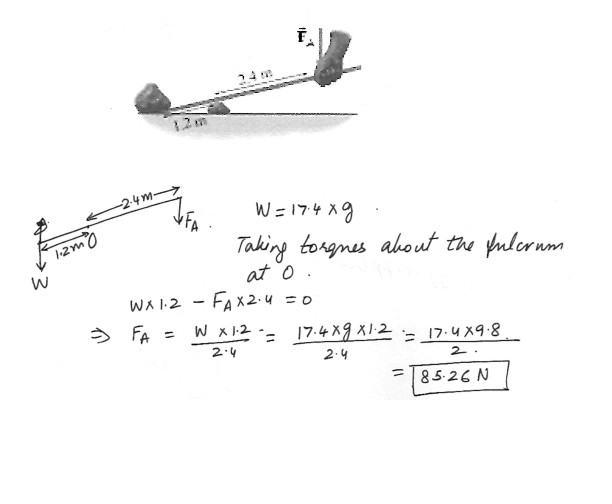 F⃗_A
2.4 m
1.2 m
2.4m
F_A.
1.2m O
W
W = 17.4 × g .
Taking torques about the fulcrum
at O .
W × 1.2 - F_A × 2.4 = 0
⇒ F_A = W × 1.2 / 2.4 = 17.4 × g × 1.2 / 2.4 = 17.4 × 9.8 / 2 .
= 85.26 N